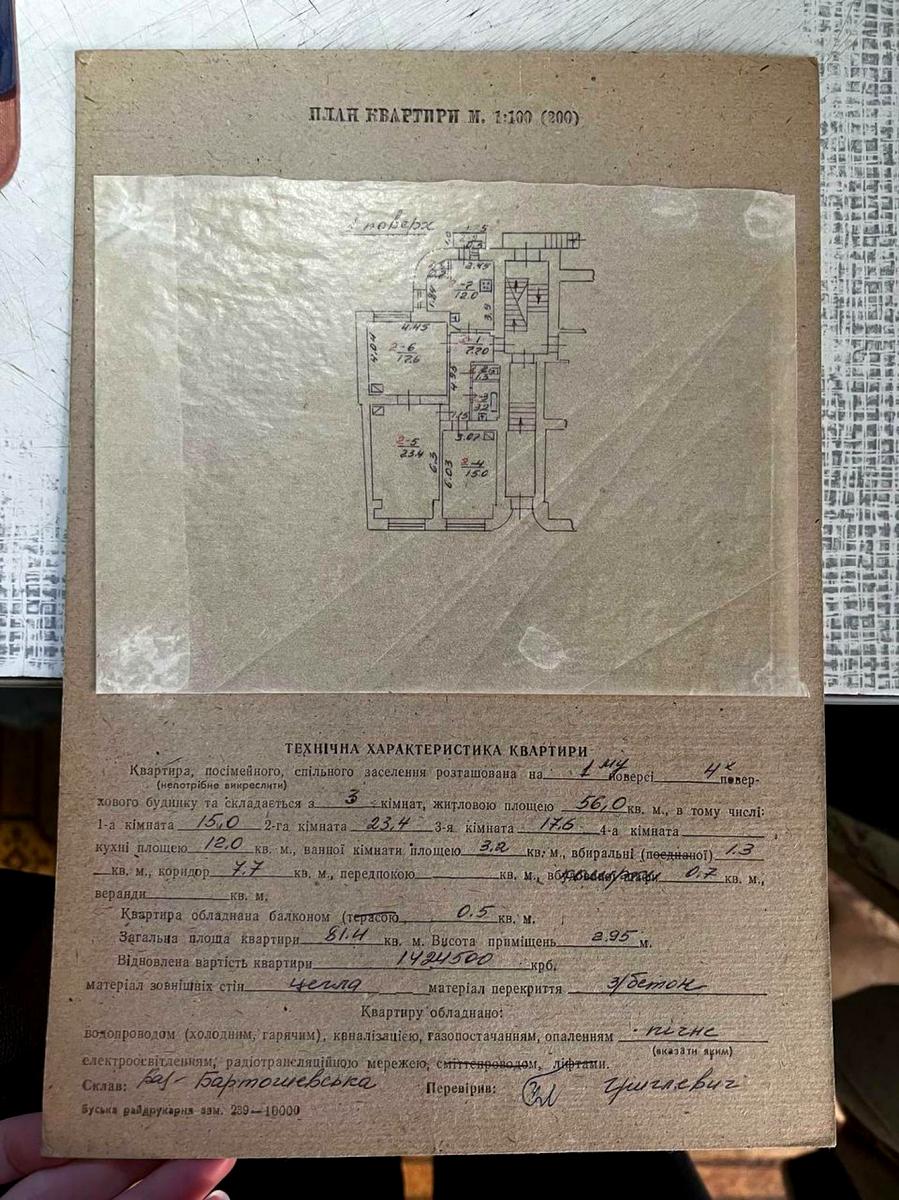 ПЛАН КВАРТИРИ М. 1:100 (200)
поверх
2.45
2-2
12.0
1.84
3.9
4.45
4.04
2-6
17.6
2-1
4.95
1.3
3.2
1.15
3.07
2-5
23.4
6.3
6.03
2-4
15.0
ТЕХНІЧНА ХАРАКТЕРИСТИКА КВАРТИРИ
Квартира, посімейного, спільного заселення розташована на 1му поверсі 4х повер-
(непотрібне викреслити)
хового будинку та складається з 3 кімнат, житловою площею 56,0 кв. м., в тому числі:
1-а кімната 15,0 2-га кімната 23,4 3-я кімната 17.6 4-а кімната
кухні площею 12.0 кв. м., ванної кімнати площею 3,2 кв. м., вбиральні (поєднаної) 1.3
кв. м., коридор 7.7 кв. м., передпокою кв. м., 0.7 кв. м.,
веранди кв. м.
Квартира обладнана балконом (терасою 0.5 кв. м.
Загальна площа квартири 81.4 кв. м. Висота приміщень 2.95 м.
Відновлена вартість квартири 1424500 крб.
матеріал зовнішніх стін цегла матеріал перекриття з/бетон
Квартиру обладнано:
водопроводом (холодним, гарячим), каналізацією, газопостачанням, опаленням пічне
(вказати яким)
електроосвітленням, радіотрансляційною мережею, сміттєпроводом, ліфтами.
Склав: Бартошевська Перевірив: Григлевич
Буська райдрукарня зам. 239—10000